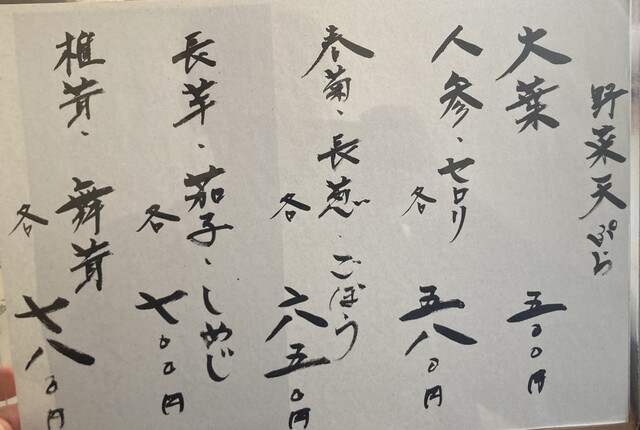 野菜天ぷら
大葉 五〇〇円
人参、セロリ 各 五八〇円
春菊、長葱、ごぼう 各 六五〇円
長芋、茄子、しめじ 各 七〇〇円
椎茸、舞茸 各 七八〇円